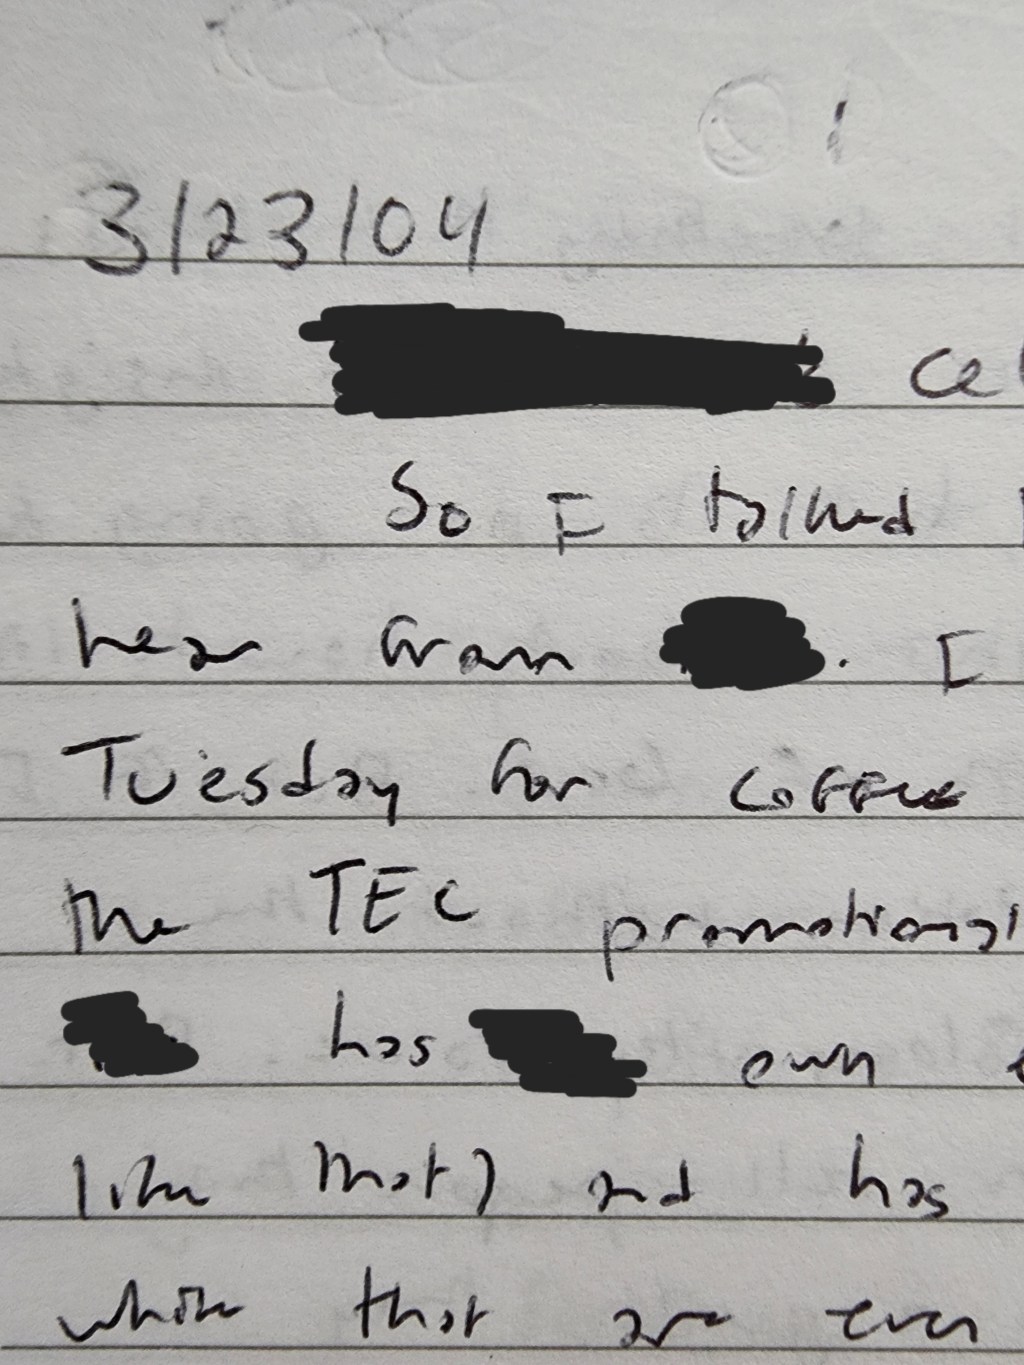 3/23/04
Ce
So I talked
hear from . I
Tuesday for coffee
the TEC promotional
has own
like that) and has
while that are even